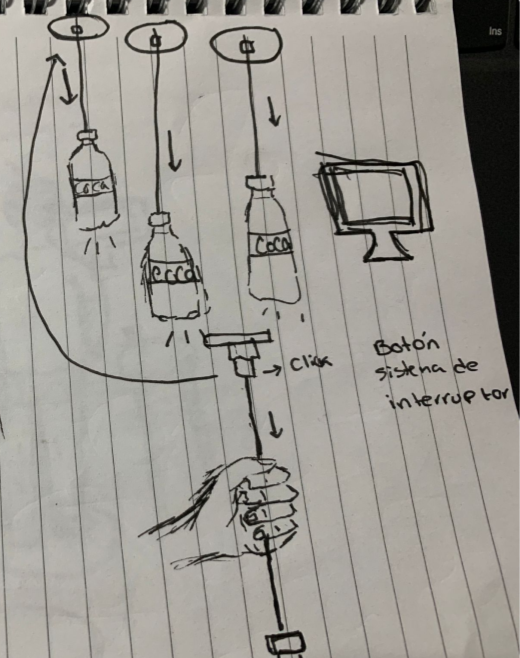 Ins
COCA
COCA
COCA
Click
Botón
sistema de
interruptor